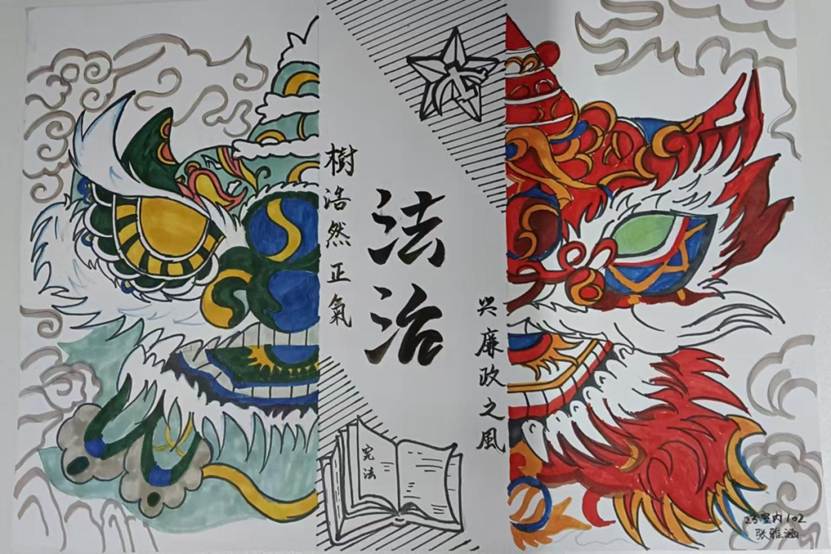 樹浩然正氣
法治
兴廉政之风
宪法
23室内102
张雅涵